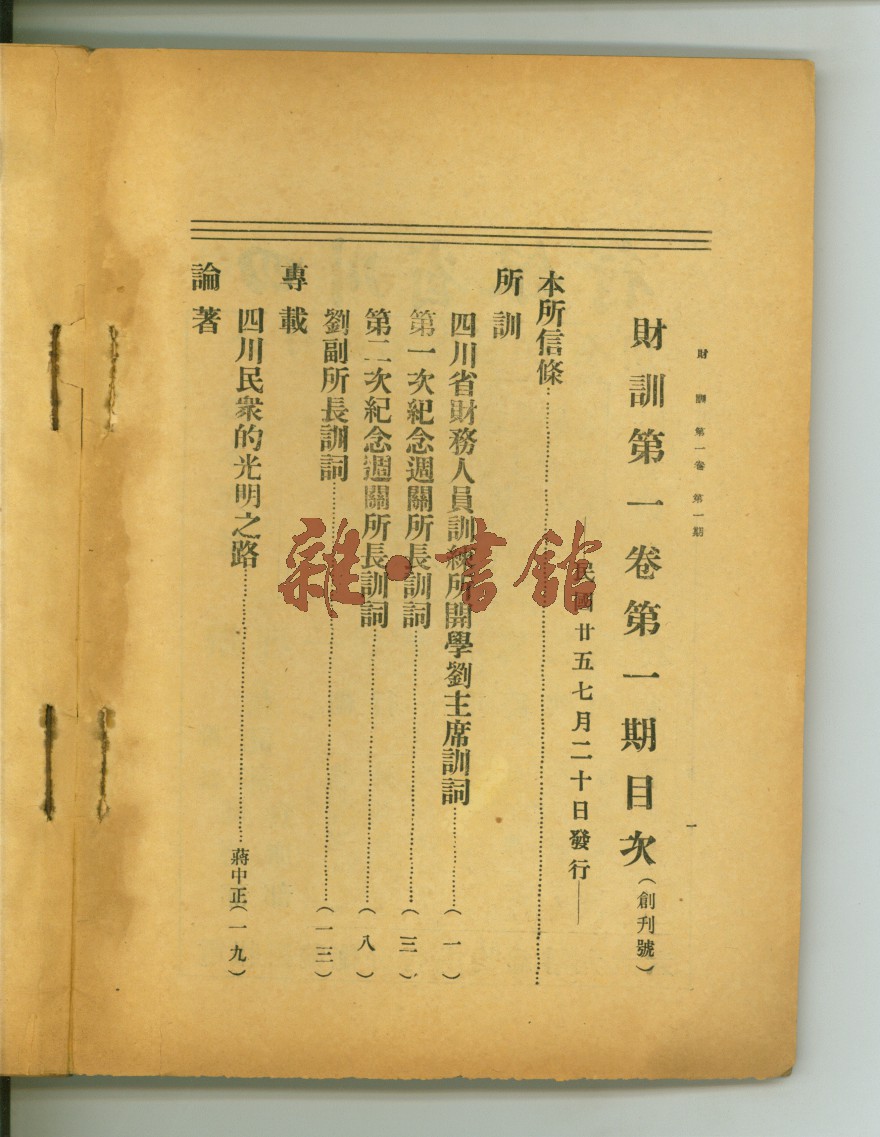 財訓 第一卷 第一期
一
財訓第一卷第一期目次(創刊號)
——民國廿五七月二十日發行——
本所信條
所訓
四川省財務人員訓練所開學劉主席訓詞(一)
第一次紀念週關所長訓詞(三)
第二次紀念週關所長訓詞(八)
劉副所長訓詞(一三)
專載
四川民衆的光明之路 蔣中正(一九)
論著
雜·書館